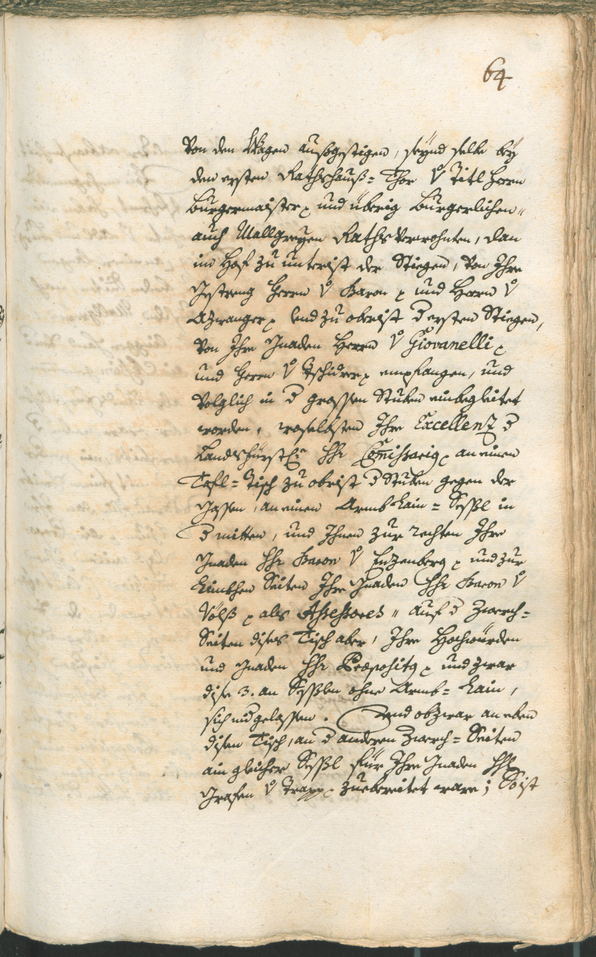 64
Von den Wagen außgestigen, seynd selbe bey
den ersten Rathshauß-Thor v Titl Herrn
Burgermaister und übrig Burgerlichen
auch Raths verwohnten, dan
im Hof zu unterist der Stiegen, von Ihro
Gestreng Herrn v Baron und Herrn v
Azwanger, und zu obrist d ersten Stiegen,
von Ihro Gnaden Herrn v Giovanelli
und Herrn v Tschiderer empfangen, und
volglich in d grossen Stuben einbegleitet
worden, woselbsten Ihro Excellenz d
Landsfürstl: HH: Comissarig an einen
Tafl-Tisch zu obrist d Stuben gegen der
Gassen, an einen Armb Lain-Sessl in
d mitten, und Ihnen zur rechten Ihro
Gnaden HH: Baron v Enzenberg, und zur
Linkhen Seiten Ihro Gnaden HH: Baron v
Völß, als Assessores, auf d Zwerch-
Seiten dises Tisch aber, Ihro Hochwürden
und Gnaden HH: Præpositg, und zwar
dise 3. an Sesslen ohne Armb-Lain,
sich nidgelassen. Und obzwar an eben
disen Tisch, an d anderen Zwerch-Seiten
ain gleicher Sessl für Ihro Gnaden HH:
Grafen v Trapp, zuebereitet ware; So ist